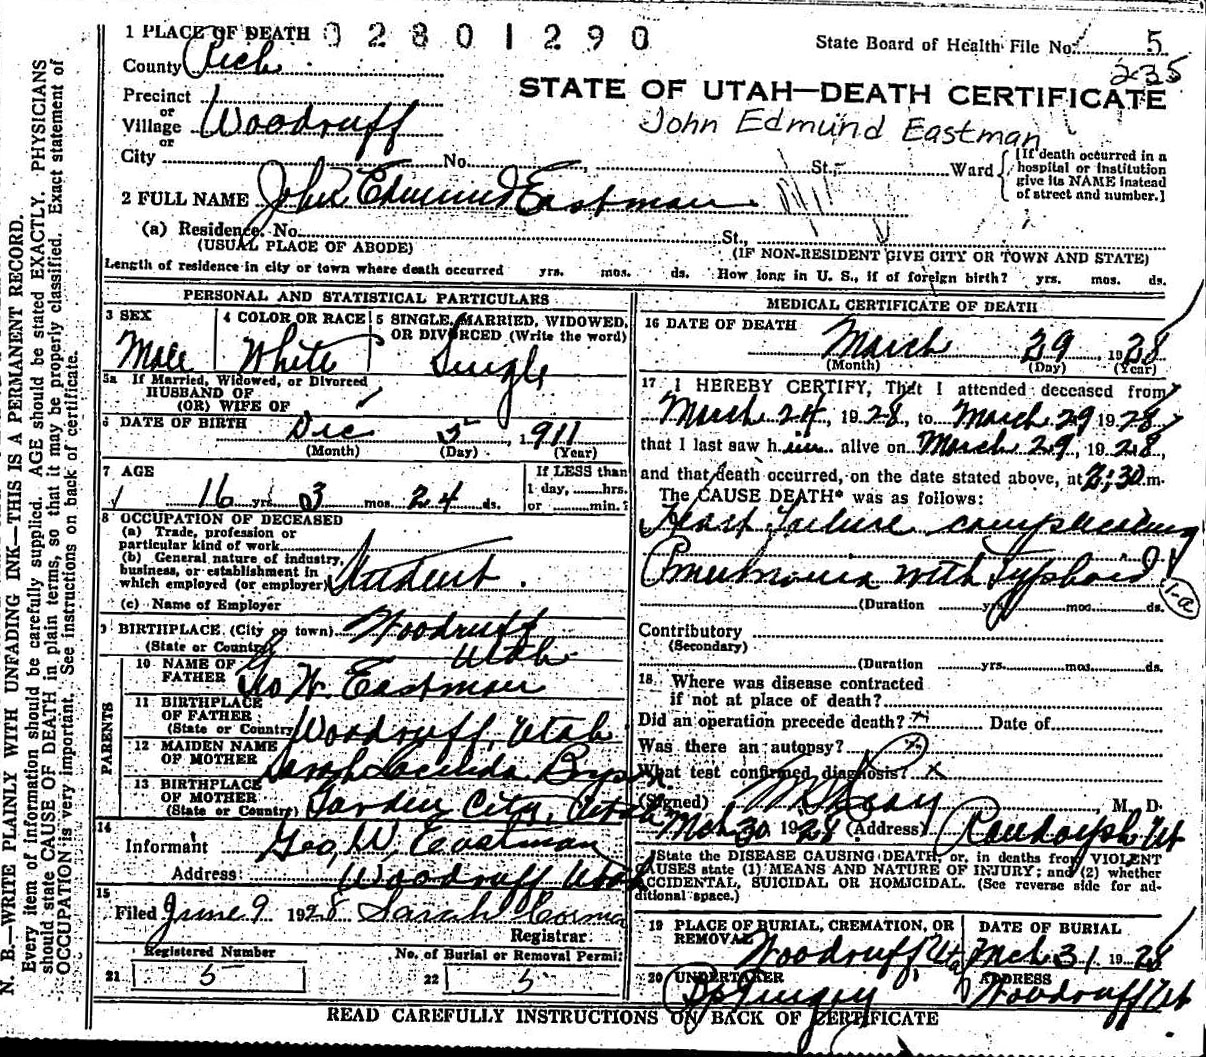 1 PLACE OF DEATH 02801290
State Board of Health File No. 5
County Rich
235
STATE OF UTAH—DEATH CERTIFICATE
Precinct
or
Village Woodruff
or
John Edmund Eastman
City No. St. Ward
[If death occurred in a hospital or institution give its NAME instead of street and number.]
2 FULL NAME John Edmund Eastman
(a) Residence. No. St.,
(USUAL PLACE OF ABODE) (IF NON-RESIDENT GIVE CITY OR TOWN AND STATE)
Length of residence in city or town where death occurred yrs. mos. ds. How long in U. S., if of foreign birth? yrs. mos. ds.
PERSONAL AND STATISTICAL PARTICULARS
3 SEX Male
4 COLOR OR RACE White
5 SINGLE, MARRIED, WIDOWED, OR DIVORCED (Write the word) Single
5a If Married, Widowed, or Divorced
HUSBAND OF
(OR) WIFE OF
6 DATE OF BIRTH Dec 5, 1911
(Month) (Day) (Year)
7 AGE 16 yrs. 03 mos. 24 ds.
If LESS than
1 day, hrs.
or min.?
8 OCCUPATION OF DECEASED
(a) Trade, profession or
particular kind of work
(b) General nature of industry,
business, or establishment in
which employed (or employer) Student.
(c) Name of Employer
9 BIRTHPLACE (City or town) Woodruff
(State or Country) Utah
PARENTS
10 NAME OF
FATHER Geo W. Eastman
11 BIRTHPLACE
OF FATHER
(State or Country) Woodruff, Utah
12 MAIDEN NAME
OF MOTHER Sarah Lucinda Bryson
13 BIRTHPLACE
OF MOTHER
(State or Country) Garden City, Utah
14
Informant Geo. W. Eastman
Address: Woodruff Utah
15
Filed June 9 1928 Sarah
Registrar.
Registered Number No. of Burial or Removal Permit
21 5 22 5
MEDICAL CERTIFICATE OF DEATH
16 DATE OF DEATH
March 29, 1928
(Month) (Day) (Year)
17 I HEREBY CERTIFY, That I attended deceased from
March 24, 1928, to March 29 1928,
that I last saw him alive on March 29, 1928,
and that death occurred, on the date stated above, at 2:30 m.
The CAUSE DEATH* was as follows:
Heart Failure complicating
Pneumonia with Typhoid
1-a
(Duration yrs. mos. ds.
Contributory
(Secondary)
(Duration yrs. mos. ds.
18. Where was disease contracted
if not at place of death?
Did an operation precede death? x Date of
Was there an autopsy? x
What test confirmed diagnosis? x
(Signed) M. D.
Mch 30 1928 (Address) Randolph Ut
*State the DISEASE CAUSING DEATH, or, in deaths from VIOLENT
CAUSES state (1) MEANS AND NATURE OF INJURY; and (2) whether
ACCIDENTAL, SUICIDAL OR HOMICIDAL. (See reverse side for ad-
ditional space.)
19 PLACE OF BURIAL, CREMATION, OR
REMOVAL Woodruff Utah
DATE OF BURIAL
Mch 31 1928
20 UNDERTAKER
ADDRESS
Woodruff Ut
READ CAREFULLY INSTRUCTIONS ON BACK OF CERTIFICATE
N. B.—WRITE PLAINLY WITH UNFADING INK—THIS IS A PERMANENT RECORD.
Every item of information should be carefully supplied. AGE should be stated EXACTLY. PHYSICIANS
should state CAUSE OF DEATH in plain terms, so that it may be properly classified. Exact statement of
OCCUPATION is very important. See instructions on back of certificate.